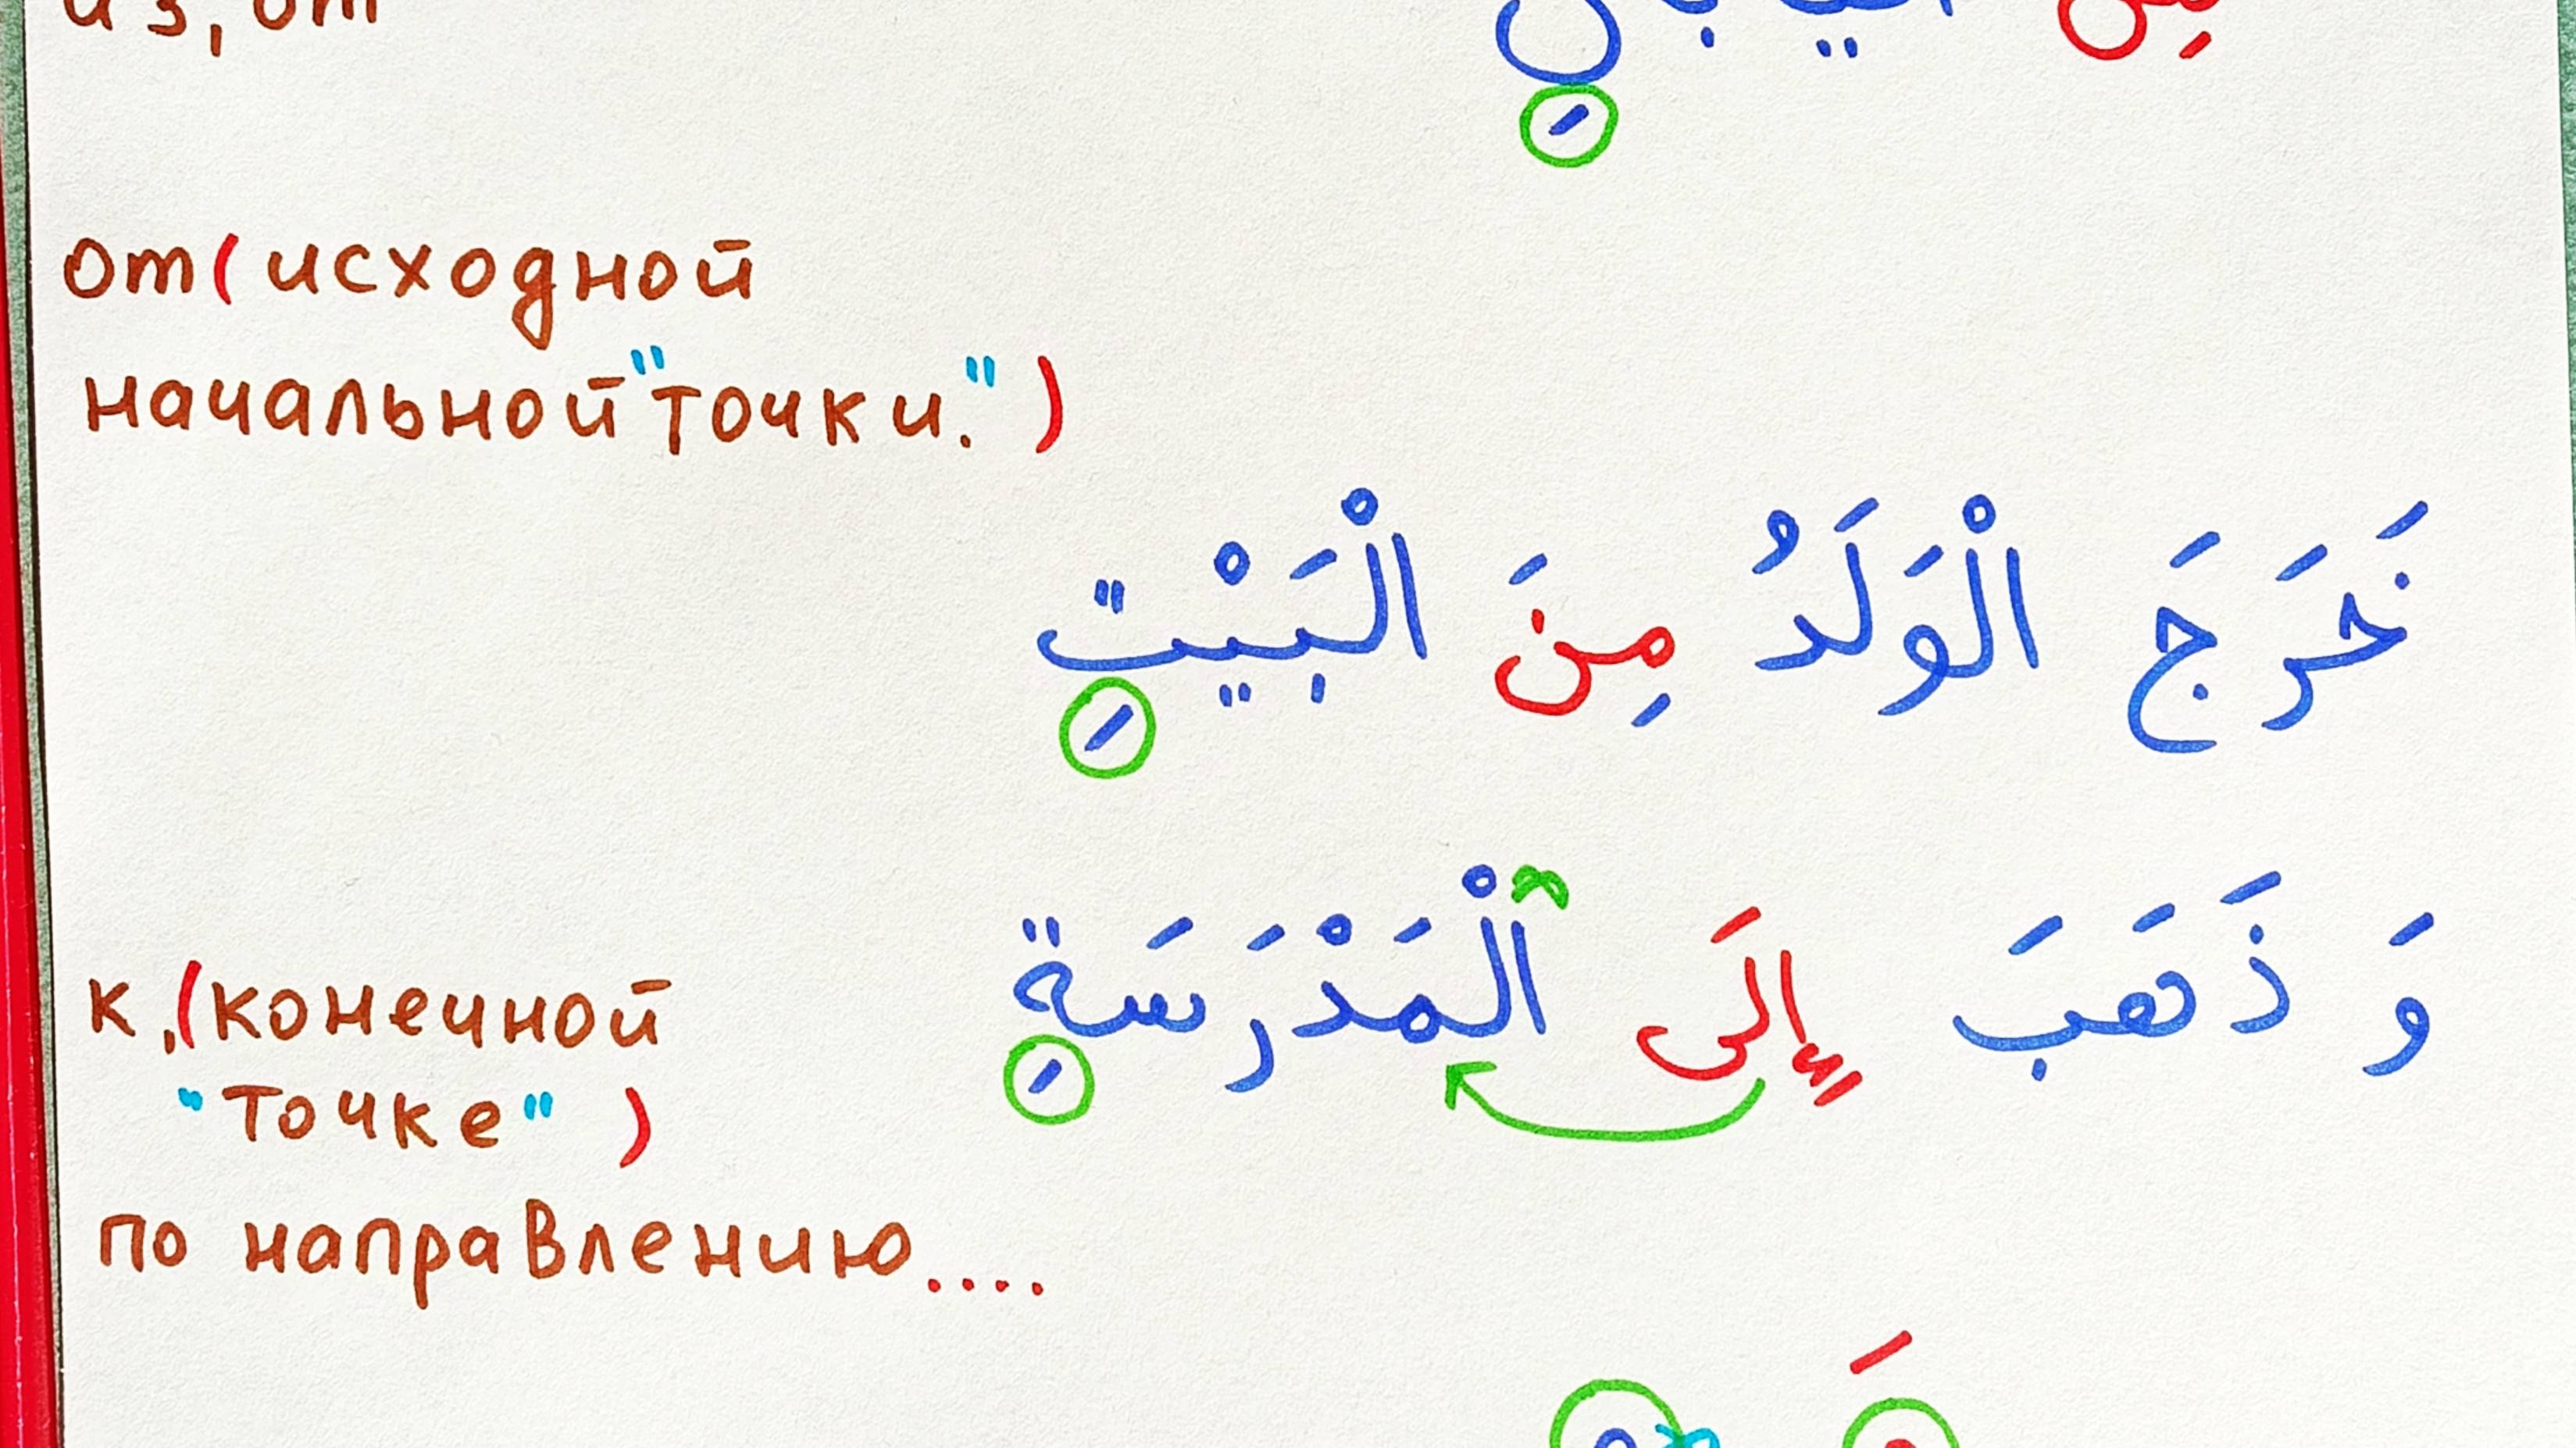 из, от مِن
от (исходной
начальной "точки.")
خَرَجَ الْوَلَدُ مِنَ الْبَيْتِ
وَ ذَهَبَ إِلَى الْمَدْرَسَةِ
к, (конечной
"Точке" )
по направлению....